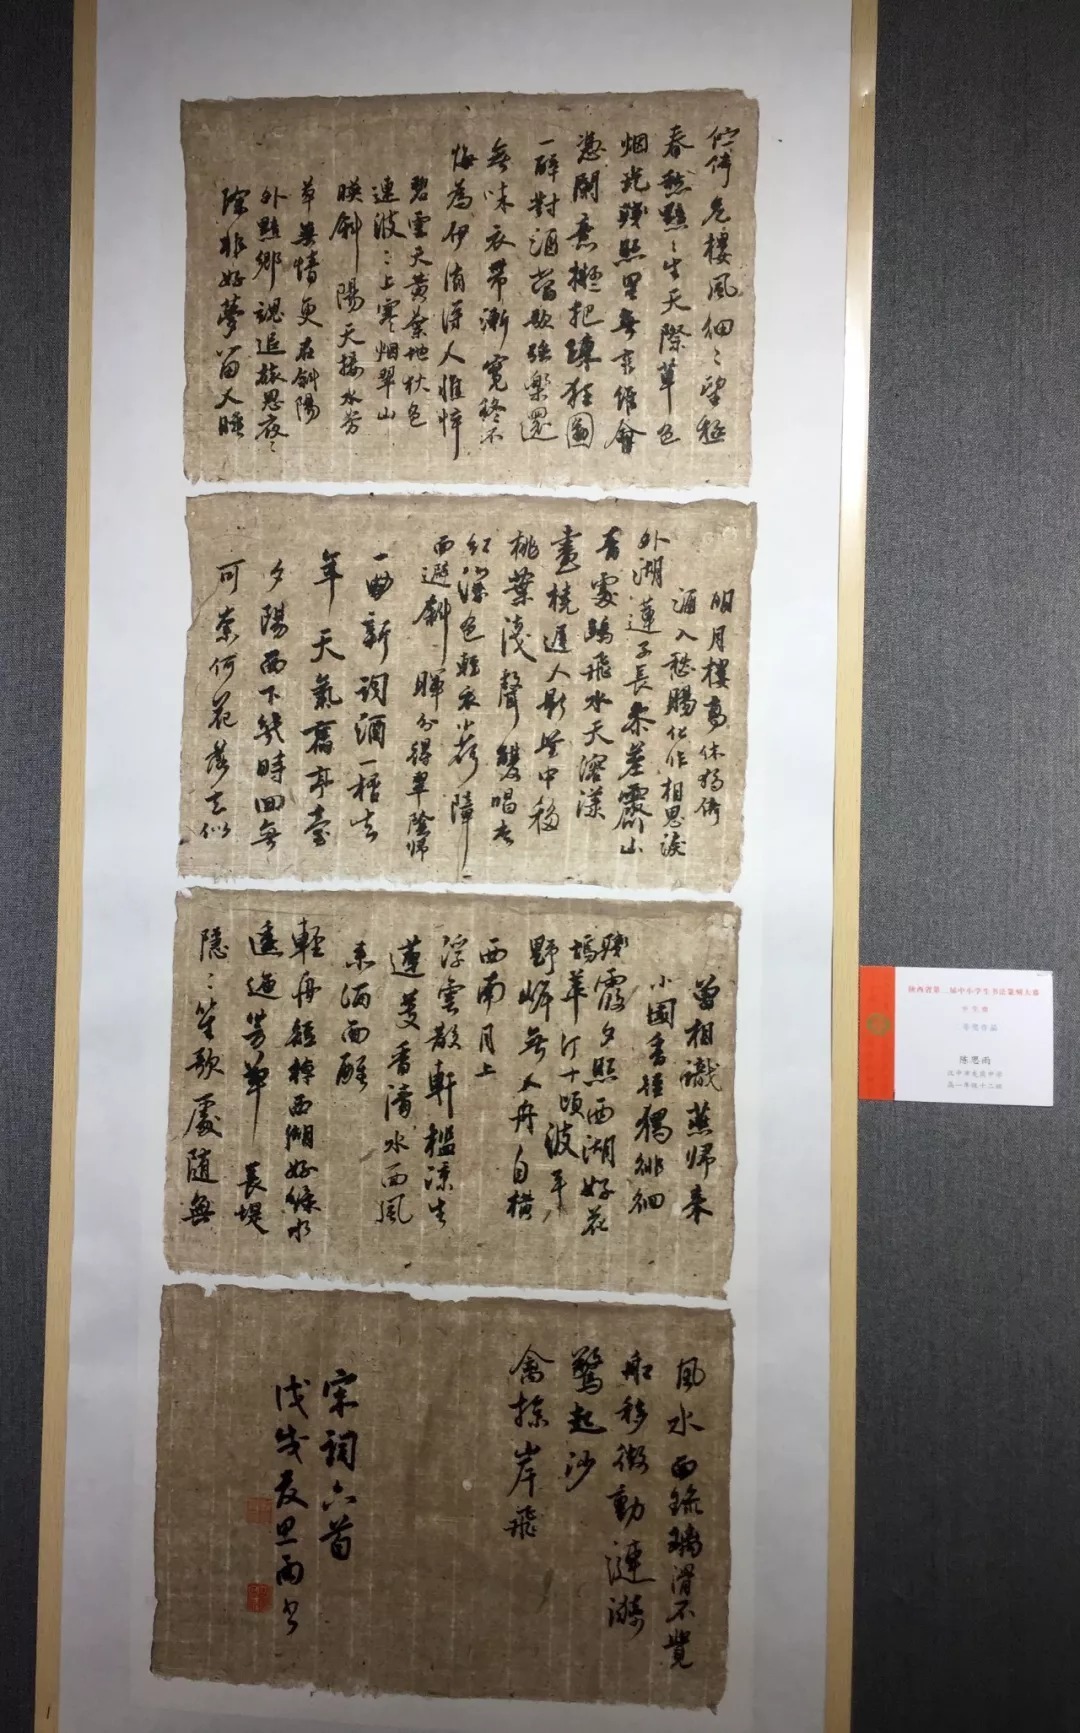 伫倚危樓風細〻望極
春愁黯〻生天際草色
烟光殘照里無言誰會
憑闌意擬把疎狂圖
一醉對酒當歌强樂還
無味衣帶漸寬終不
悔為伊消得人憔悴
碧雲天黃葉地秋色
連波〻上寒烟翠山
映斜陽天接水芳
草無情更在斜陽
外黯鄉魂追旅思夜〻
除非好夢留人睡
明月樓高休獨倚
酒入愁腸化作相思淚
外湖蓮子長參差霽山
青處鷗飛水天溶漾
畫橈遲人影鑒中移
桃葉淺聲雙唱杏
紅深色輕衣小荷障
面避斜暉分得翠陰歸
一曲新詞酒一桮去
年天氣舊亭臺
夕陽西下幾時回無
可奈何花落去似
曾相識燕歸来
小園香徑獨徘徊
殘霞夕照西湖好花
塢蘋汀十頃波平
野岸無人舟自橫
西南月上
浮雲散軒檻涼生
蓮芰香清水面風
来酒面醒
輕舟短棹西湖好綠水
逶迤芳草長堤
隱〻笙歌處隨無
風水面琉璃滑不覺
船移微動漣漪
驚起沙
禽掠岸飛
宋詞六首
戊戌夏思雨书
陕西省第二届中小学生书法篆刻大赛
学生组
陈思雨
高一年级十二班